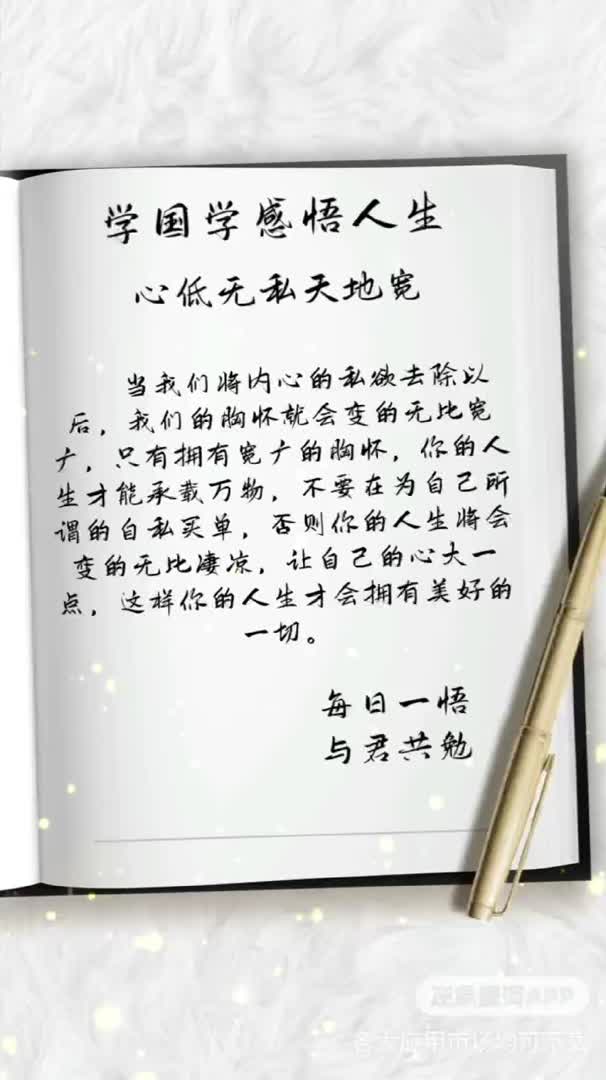 学国学感悟人生
心低无私天地宽
当我们将内心的私欲去除以
后，我们的胸怀就会变的无比宽
广，只有拥有宽广的胸怀，你的人
生才能承载万物，不要在为自己所
谓的自私买单，否则你的人生将会
变的无比凄凉，让自己的心大一
点，这样你的人生才会拥有美好的
一切。
每日一悟
与君共勉
各大应用市场均可下载